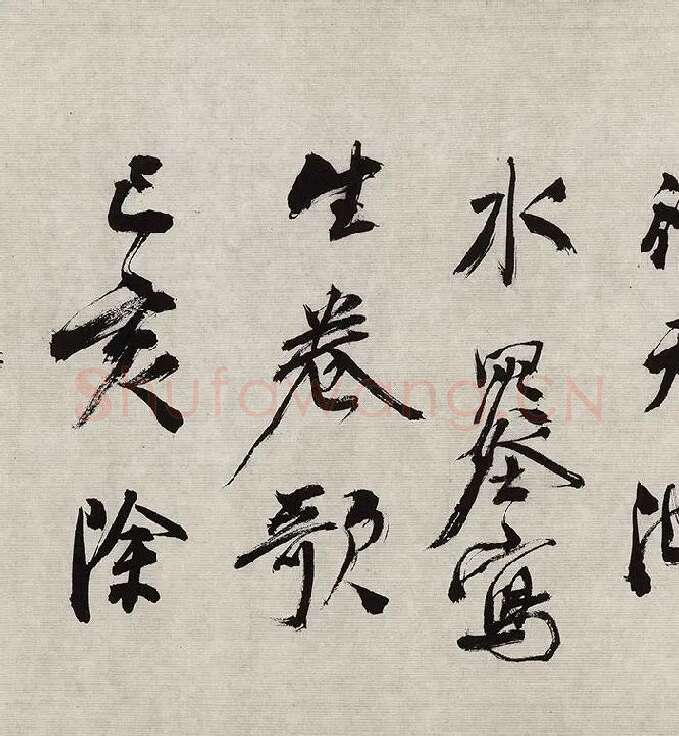 天池
水墨寫
生卷歌
己亥除
Shufawang.CN